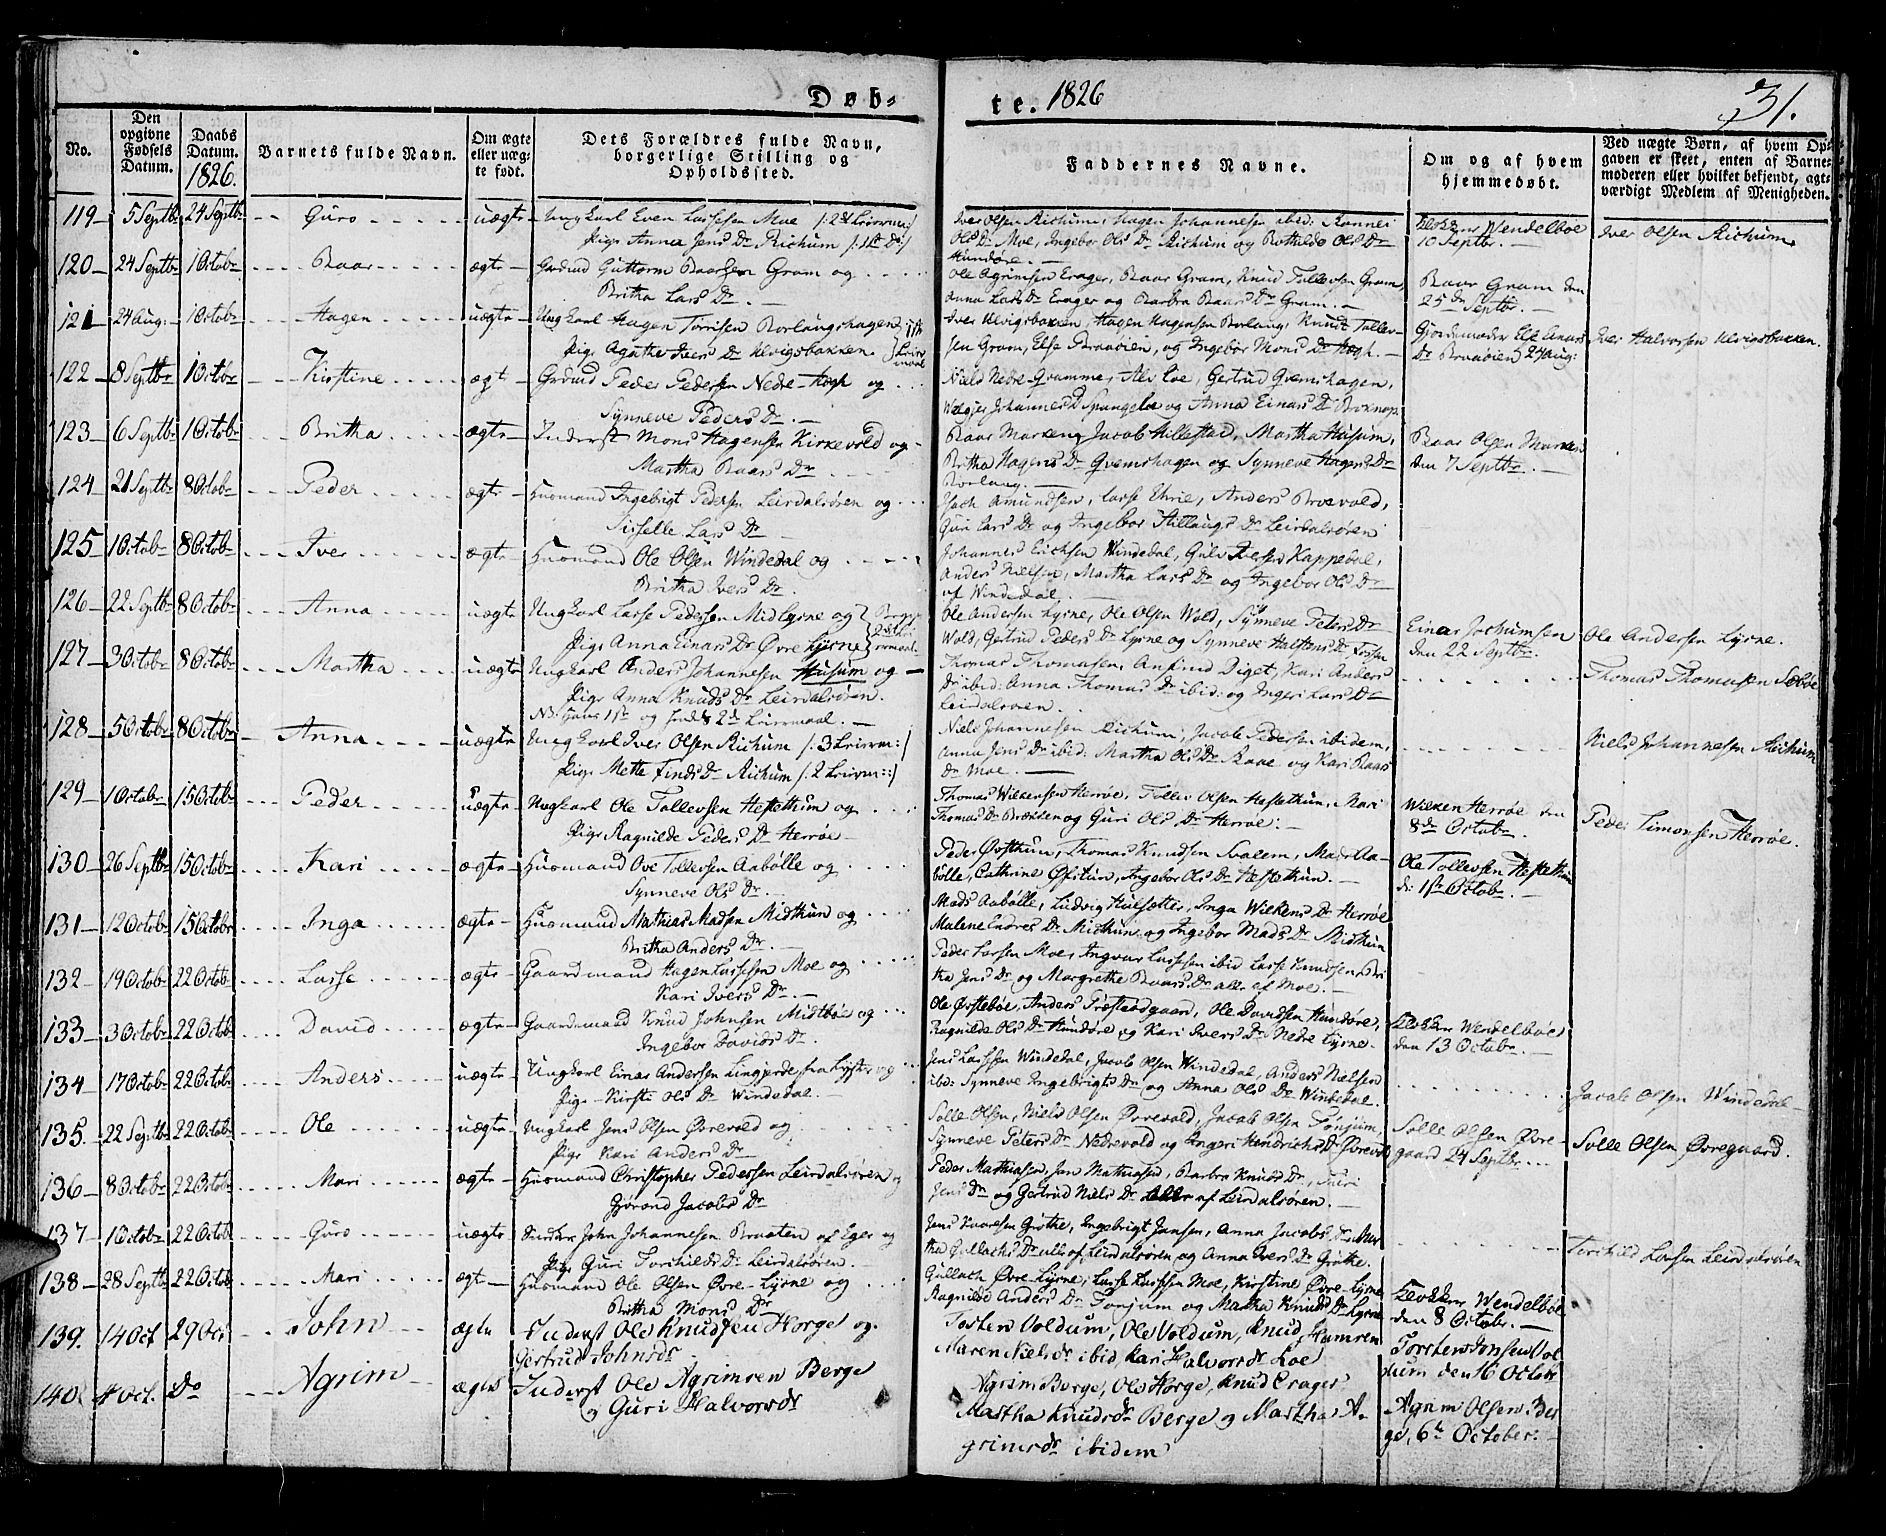 Døb-
te. 1826
31.
No.
Den opgivne Fødsels Datum.
Daabs Datum. 1826.
Barnets fulde Navn.
Om ægte eller uægte født.
Dets Forældres fulde Navn, borgerlige Stilling og Opholdssted.
Faddernes Navne.
Om og af hvem hjemmedøbt.
Ved uægte Børn, af hvem Opgaven er skeet, enten af Barnemoderen eller hvilket bekjendt, agtværdigt Medlem af Menigheden.
119 5 Septbr 24 Septbr Guro uægte Ungkarl Even Lassesen Moe
Pige Anna Jens Dr Richum
Iver Olsen Richum, Hagen Johannesen ibid: Rannei
Ols Dr Moe, Ingebor Ols Dr Richum og Bothilde Ols Dr
Hundøre.
Klokker Wendelboe
10 Septbr.
Iver Olsen Richum
120 24 Septbr 1 Octobr Baar ægte Grdmd Guttorm Baarsen Gram og
Britha Lars Dr
Ole Agrimsen Erager, Baar Gram, Knud Tollevsen Gram,
Anna Lars Dr Erager og Barbra Baars Dr Gram.
Baar Gram den
25de Septbr.
121 24 Aug: 1 Octobr Hagen uægte Ungkarl Hagen Torrisen Borlaugshagen
Pige Agathe Ivers Dr Ulvigsbakken.
Iver Ulvigsbakken, Hagen Hagensen Borlaug, Knud Tollev-
sen Gram, Else Braaøien, og Ingebor Mons Dr Hogh.
Gjordemoder Else Einars
Dr Braaøien 24 Aug:
Iver Halvorsen Ulvigsbakken.
122 8 Septbr 1 Octobr Kirstine ægt Grdmd Peder Pedersen Nedre-Hogh og
Synneve Peders Dr
Niels Nedre-Qvamme, Alv Loe, Gertrud Qvemshagen,
Johannes D Spangelo og Anna Einars Dr
123 6 Septbr 1 Octobr Britha ægte Inderst Mons Hagensen Kirkevold og
Martha Baars Dr
Baar Marken, Jacob Hillestad, Martha Husum,
Britha Hagens Dr Qvemshagen og Synneve Hagens Dr
Borlaug.
Baar Olsen Marken
den 7 Septbr.
124 21 Septbr 8 Octobr Peder ægte Huusmand Ingebrigt Pedersen Leirdalsøren og
Sisselle Lars Dr
Amundsen, Lasse Ehrie, Anders Broevold,
Guri Lars Dr og Ingebor Hillaugs Dr Leirdalsøren
125 1 Octobr 8 Octobr Iver ægte Huusmand Ole Olsen Windedal og
Britha Ivers Dr
Johannes Erichsen Windedal, Gulv Iversen Kappedal,
Anders Nielsen, Martha Lars Dr og Ingebor Ols Dr
af Windedal.
126 22 Septbr 8 Octobr Anna uægte Ungkarl Lasse Pedersen Midlyrne og
Pige Anna Einars Dr Øvre Lyrne
Ole Andersen Lyrne, Ole Olsen Wold, Synneve Peters Dr
Wold, Gertrud Peders Dr Lyrne og Synneve Halstens Dr
Einar Jochumsen
den 22 Septbr.
Ole Andersen Lyrne.
127 3 Octobr 8 Octobr Martha uægte Ungkarl Anders Johannesen Husum og
Pige Anna Knuds Dr Leirdalsøren.
NB: Hans 1ste og hendes 2d Leiermaal.
Thomas Thomasen, Anfind Øigat, Kari Anders
Dr ibid: Anna Thomas Dr ibid: og Ingeri Lars Dr
Leirdalsøren.
Thomas Thomasen Sæbøe
128 5 Octobr 8 Octobr Anna uægte Ungkarl Iver Olsen Richum /: 3 Leierm: /
Pige Mette Finds Dr Richum /: 2 Leierm: :/
Niels Johannesen Richum, Jacob Pedersen ibidem,
Anna Jens Dr ibid. Martha Ols Dr Raae og Kari Baars
Dr Moe.
Niels Johannesen Richum
129 1 Octobr 15 Octobr Peder uægte Ungkarl Ole Tollevsen Hestethun og
Pige Ragnilde Peders Dr Herrøe
Thomas Wilkensen Herrøe, Tollev Olsen Hestethun, Mari
Thomas Dr Bræiden og Guri Ols Dr Herrøe.
Wilken Herrøe den
8de Octobr.
Peder Simonsen Herrøe.
130 26 Septbr 15 Octobr Kari ægte Huusmand Ove Tollevsen Aabølle og
Synneve Ols Dr.
Peder Øvsthun, Thomas Knudsen Svalem, Mads Aa-
bølle, Cathrine Øfstun, Ingebor Ols Dr Hestethun.
Ole Tollevsen Hestethun
d: 1ste Octobr.
131 12 Octobr 15 Octobr Inga ægte Huusmand Mathias Madsen Midthun og
Britha Anders Dr.
Mads Aabølle, Ludvig Hulsetter, Inga Wilkens Dr Herrøe
Malene Endres Dr Midthun og Ingebor Mads Dr Midthun
132 19 Octobr 22 Octobr Lasse ægte Gaardmand Hagen Lassesen Moe og
Kari Ivers Dr.
Peder Larsen Moe, Ingvar Lassesen ibid Lasse Knudsen Bri
tha Jens Dr og Margrethe Baars Dr alle af Moe.
133 3 Octobr 22 Octobr David ægte Gaardmand Knud Johnsen Midtbøe og
Ingebor Davids Dr.
Ole Ørstebøe, Anders Præstegaard, Ole Davidsen Hundøre,
Ragnilde Ols Dr Hundøre og Kari Ivers Dr Nedre Lyrne.
Klokker Wendelboe
den 13 Octobr.
134 17 Octobr 22 Octobr Anders uægte Ungkarl Einar Andersen Lingjerde fra Lyster og
Pige Kirsti Ols Dr Windedal.
Jens Lassesen Windedal, Jacob Olsen Windedal, Anders Nielsen
ibid: Synneve Ingebrigts Dr og Anna Ols Dr Windedal.
Jacob Olsen Windedal
135. 22 Septbr 22 Octobr Ole uægte Ungkarl Jens Olsen Øvrevold og
Pige Kari Anders Dr
Solle Olsen, Niels Olsen Øvrevold, Jacob Olsen Tonjum,
Synneve Peters Dr Nedrevold og Ingeri Hendrichs Dr Øvrevold
Solle Olsen Øvre-
gaard 24 Septbr.
Solle Olsen Øvregaard.
136 8 Octobr 22 Octobr Mari ægte Huusmand Christopher Pedersen Leirdalsøren og
Gjørond Jacobs Dr
Peder Mathiasen, Jan Mathiasen, Barbra Knuds Dr, Guri
Jens Dr og Gertrud Niels Dr alle af Leirdalsøren.
137 1 Octobr 22 Octobr Guro uægte John Johannesen Braaten af Eger og
Pige Guri Torchilds Dr Leirdalsøren.
Jens Kaaresen Grøthe, Ingebrigt Jansen, Anna Jacobs Dr Mar
tha Gullachs Dr alle af Leirdalsøren og Anna Ivers Dr Grøthe.
Torchild Larsen Leirdalsøren
138 28 Septbr 22 Octobr Mari ægt Huusmand Ole Olsen Øvre-Lyrne og
Britha Mons Dr
Gullach Øvre-Lyrne, Lasse Lassesen Moe, Kirstine Øvre-Lyrne
Ragnilde Anders Dr Tonjum og Martha Knuds Dr Lyrne
Klokker Wendelboe
den 8 October.
139. 14 Oct 29 Oct John ægte Inderst Ole Knudsen Horge og
Gertrud Johnsdr
Tosten Voldum, Ole Voldum, Knud Hamren
Maren Nielsdr ibid, Kari Halvorsdr Loe
Torsten Jonsen Vol
dum den 16 Octobr
140. 4 Oct. Do Agrim ægte Inderst Ole Agrimsen Berge
og Guri Halvorsdr
Agrim Berge, Ole Horge, Knud Erager
Martha Knudsdr Berge og Martha A-
grimsdr ibidem
Agrim Olsen Ber
ge, 6te October.